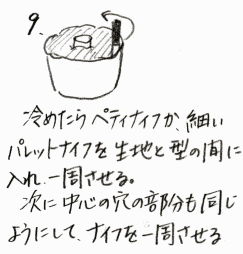 9.
冷めたら ペティナイフか、細い
パレットナイフを 生地と型の間に
入れ、一周させる。
次に 中心の穴の部分も同じ
ようにして、ナイフを一周させる